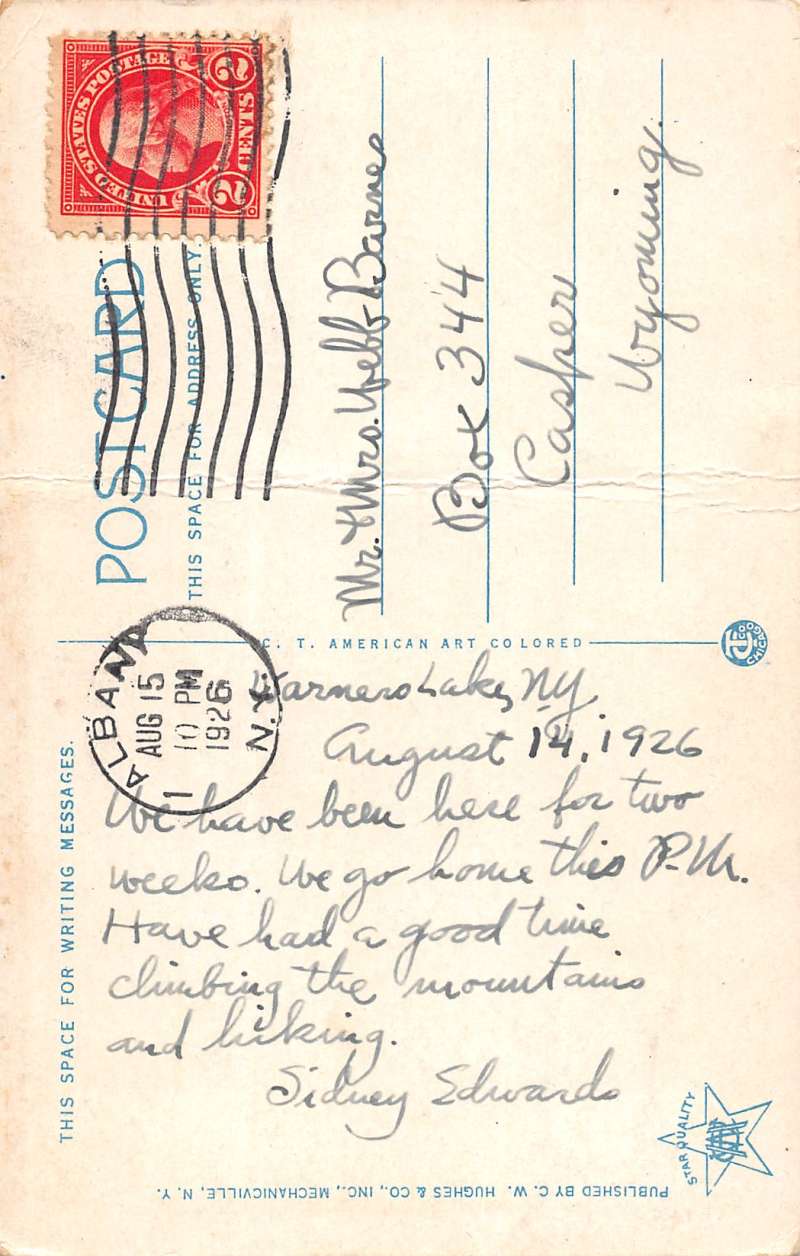 UNITED STATES POSTAGE
2 CENTS 2
POST CARD
THIS SPACE FOR ADDRESS ONLY.
Mr. & Mrs. Webb Barnes
Box 344
Casper
Wyoming.
C. T. AMERICAN ART COLORED
CHICAGO
ALBANY
AUG 15
10 PM
1926
N.Y.
1
THIS SPACE FOR WRITING MESSAGES.
Warners Lake, NY
August 14, 1926
We have been here for two
weeks. We go home this P.M.
Have had a good time
climbing the mountains
and hiking.
Sidney Edwards
STAR QUALITY
PUBLISHED BY C. W. HUGHES & CO., INC., MECHANICVILLE, N. Y.